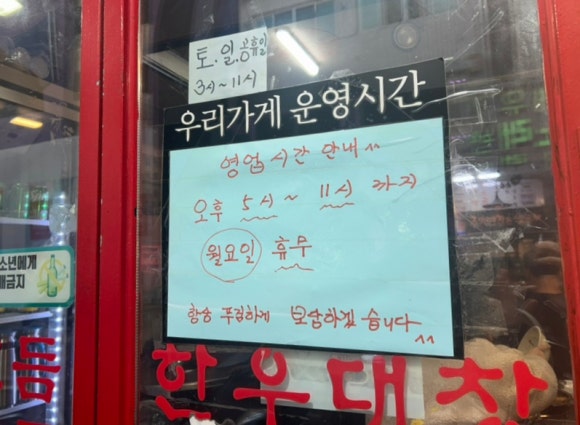 토·일·공휴일
3시~11시
우리가게 운영시간
영업시간 안내^^
오후 5시~11시 까지
월요일 휴무
항상 푸짐하게 보답하겠습니다^^
소년에게
매금지
한우대창